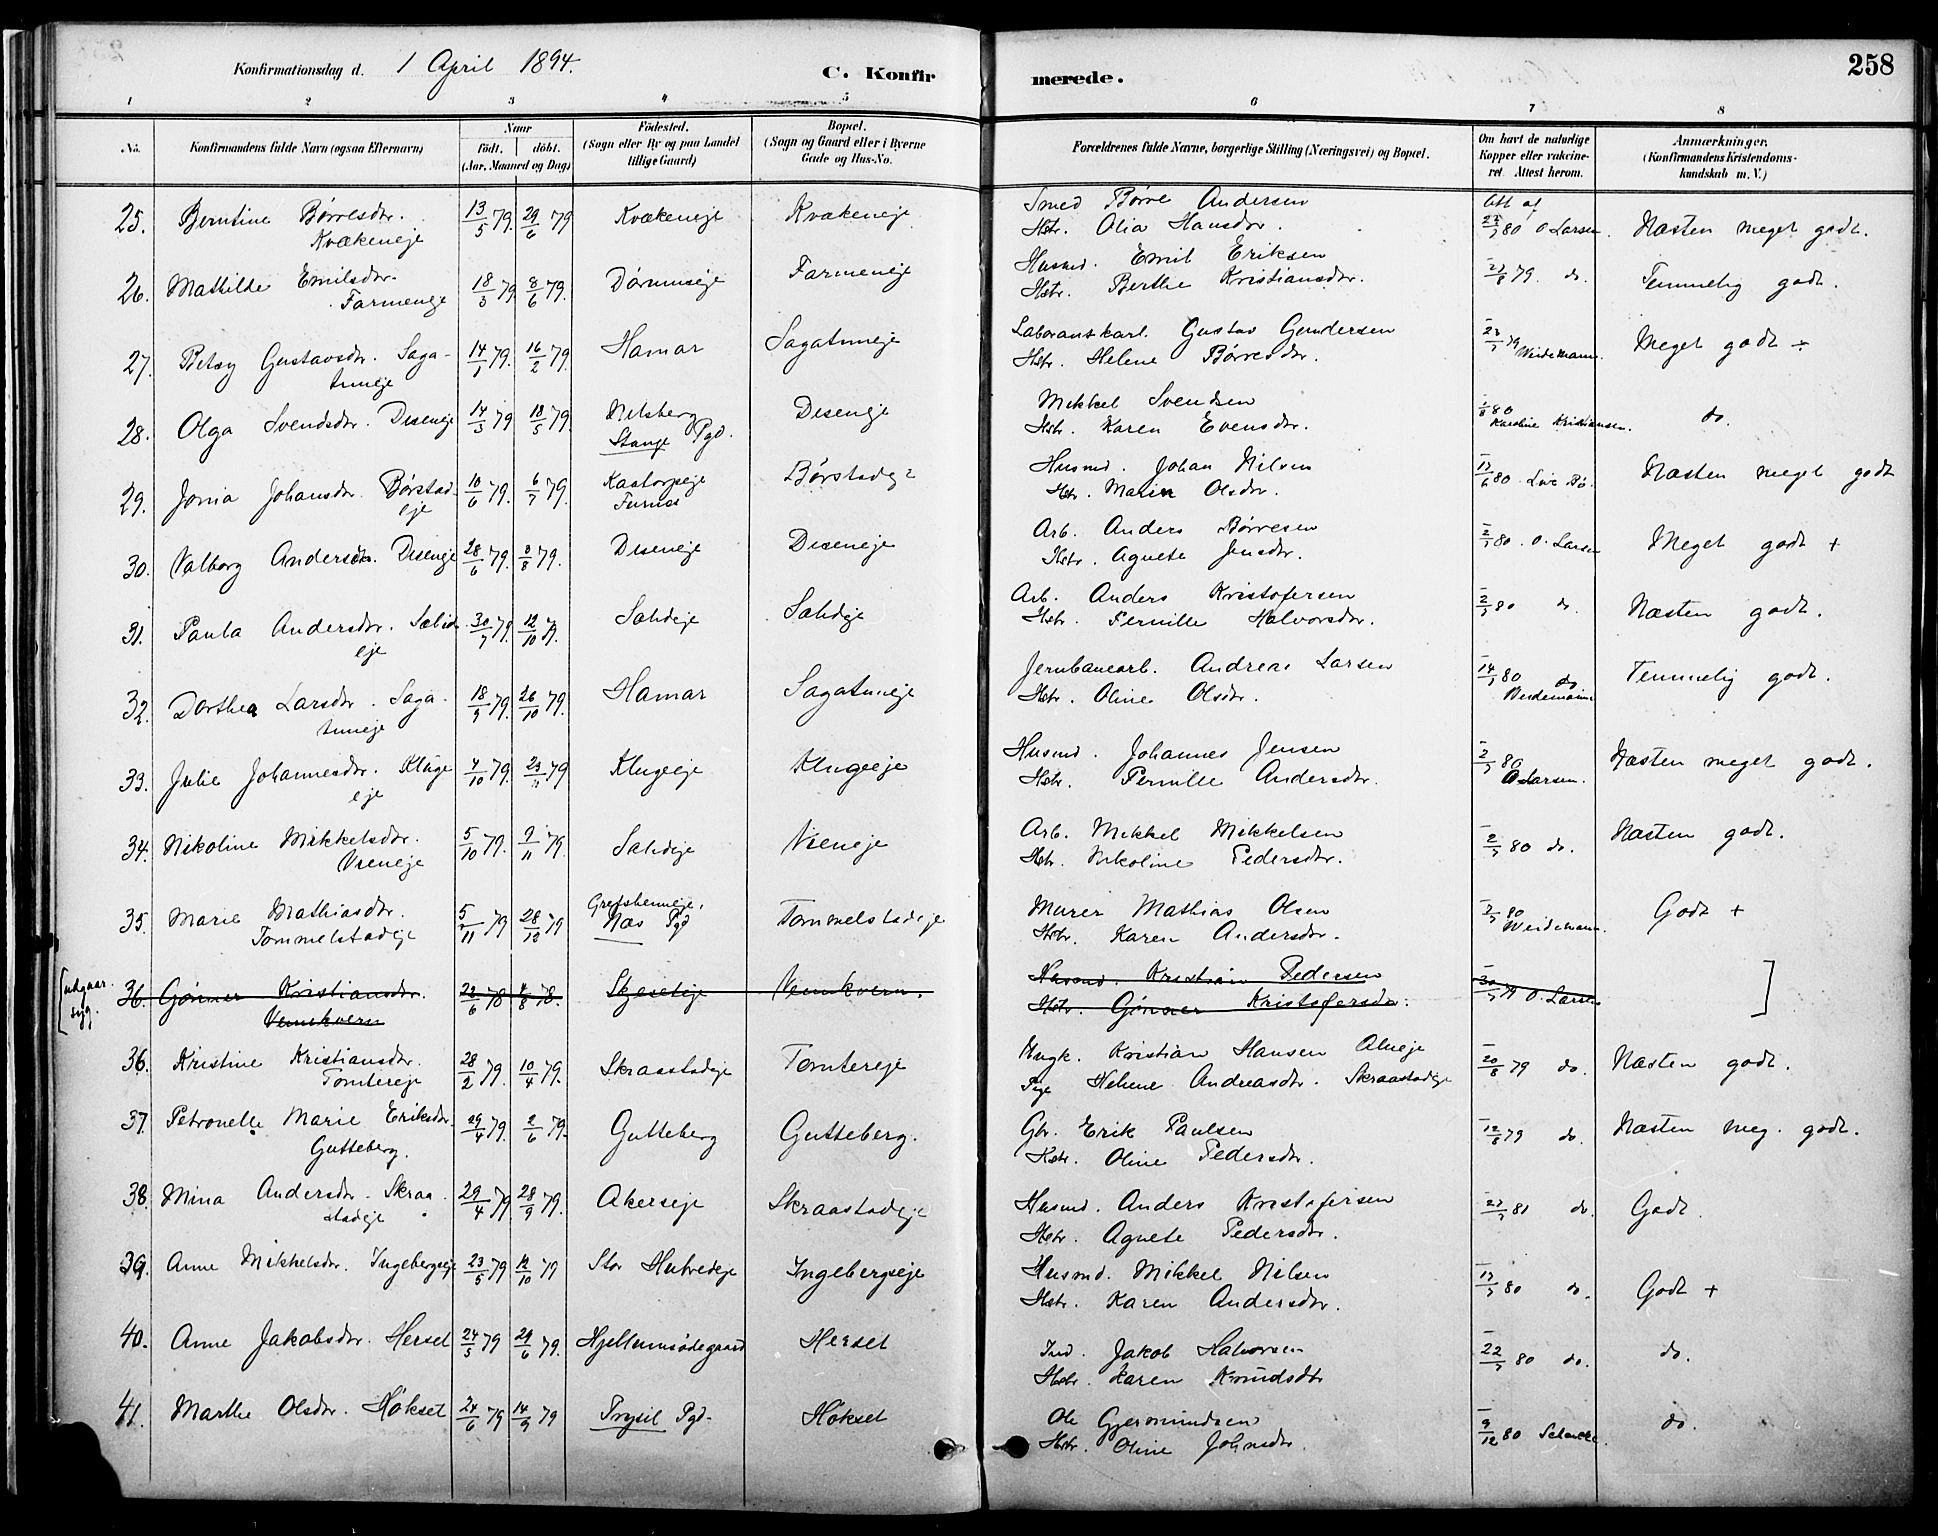 258
Konfirmationsdag d. 1 April 1894.
C. Konfirmerede.
1 2 3 4 5 6 7 8
No.
Konfirmandens fulde Navn (ogsaa Efternavn)
Naar
födt. döbt.
(Aar, Maaned og Dag)
Födested.
(Sogn eller By og paa Landet tillige Gaard)
Bopæl.
(Sogn og Gaard eller i Byerne Gade og Hus-No.
Forældrenes fulde Navne, borgerlige Stilling (Næringsvei) og Bopæl.
Om havt de naturlige Kopper eller vakcineret. Attest herom.
Anmærkninger.
(Konfirmandens Kristendomskundskab m. V.)
25. Berntine Børresdtr. Kvækeneje 13/5 79. 29/6 79 Kvækeneje Kvækeneje
Smed Børre Andersen
Hstr. Olia Hansdtr. O Larsen. Næsten meget godt.
26. Mathilde Emilsdtr. Farmeneje 18/3 79 8/6 79. Farmeneje
Husmd. Emil Eriksen
Hstr. Berthe Kristiansdtr. 79. do. Temmelig godt.
27. Betsy Gustavsdtr. Sagatuneje 14/1 79. 16/2 79. Hamar Sagatuneje
Gustav Gundersen
Hstr. Helene Børresdtr. Weidemann. Meget godt ÷
28. Olga Svendsdtr. Diseneje 14/3 79 18/5 79. Stange Pgd. Diseneje
Mikkel Svendsen
Hstr. Karen Evensdtr. 80 Karoline Kristiansen. do.
29. Jonia Johansdtr. Børstadeje 10/6 79. 6/7 79. Furnes Børstadeje
Husmd. Johan Nilsen
Hstr. Marie Olsdtr. 80 Næsten meget godt
30. Valborg Andersdtr. Diseneje 28/6 79. 8/8 79. Diseneje Diseneje
Arb. Anders Børresen
Hstr. Agnete Jensdtr. 80. O. Larsen Meget godt +
31. Paula Andersdtr. Sælideje 30/7 79. 12/10 79. Sælideje Sælideje
Arb. Anders Kristofersen
Hstr. Pernille Halvorsdtr. 80 do. Næsten godt.
32. Dorthea Larsdtr. Sagatuneje 18/9 79. 26/10 79. Hamar Sagatuneje
Jernbanearb. Andreas Larsen
Hstr. Oline Olsdtr. 80 Weidemann Temmelig godt.
33. Julie Johannesdtr. Klugeeje 4/10 79. 23/11 79 Klugeeje Klugeeje
Husmd. Johannes Jensen
Hstr. Pernille Andersdtr. 80 O Larsen. Næsten meget godt.
34. Nikoline Mikkelsdtr. Vieneje 5/10 79. 9/11 79. Sælideje Vieneje
Arb. Mikkel Mikkelsen
Hstr. Nikoline Pedersdtr. 80 do. Næsten godt.
35. Marie Mathiasdtr. Tommelstadeje 5/11 79 28/12 79 Grefsheimeje, Næs Pgd Tommelstadeje
Murer Mathias Olsen
Hstr. Karen Andersdtr. 80 Weidemann. Godt +
[udgaar. syg.
36. Gønner Kristiansdtr. Vennkvern 22/6 78 4/8 78. Skjeseteje Vennkvern.
Husmd. Kristian Pedersen
Hstr. Gønner Kristofersdtr. 79 O. Larsen ]
36. Kristine Kristiansdtr. Tomtereje 28/2 79. 10/4 79. Skraastadeje Tomtereje
Ungk. Kristian Hansen Alneje
Pige Helene Andreasdtr. Skraastadeje 20/8 79 do. Næsten godt.
37. Petronelle Marie Eriksdtr. Gutteberg. 29/4 79. 2/6 79. Gutteberg Gutteberg.
Gbr. Erik Paulsen
Hstr. Oline Pedersdtr. 12/8 79 do. Næsten meg. godt.
38. Mina Andersdtr. Skraastadeje 29/4 79. 28/9 79. Akerseje Skraastadeje
Husmd. Anders Kristofersen
Hstr. Agnete Pedersdtr. 81 do. Godt.
39. Anne Mikkelsdtr. Ingebergseje 23/5 79 12/10 79 Stor Hubredeje Ingebergseje
Husmd. Mikkel Nilsen
Hstr. Karen Andersdtr. 80 do. Godt +
40. Anne Jakobsdtr. Herset 24/5 79 29/6 79. Hjellumsødegaard Herset
Ind. Jakob Halvorsen
Hstr. Karen Knudsdtr 80 do. do.
41. Marthe Olsdtr. Høkset 24/6 79 14/9 79 Trysil Pgd. Høkset
Ole Gjermundsen
Hstr. Oline Johnsdtr. 9/12 80 do.